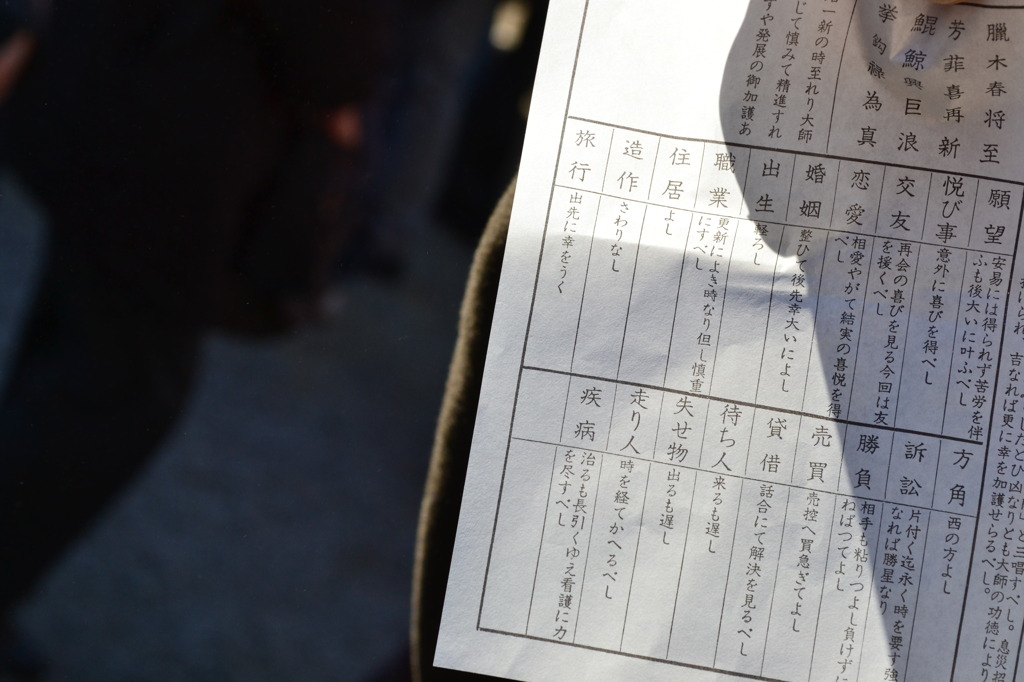 したとひ凶なりとも大師の功徳により
吉なれば更に幸を加護せらるべし。
臘木春将至
芳菲喜再新
鯤鯨興巨浪
挙釣禄為真
一新の時至れり大師
じて慎みて精進すれ
すや発展の御加護あ
願望
安易には得られず苦労を伴
ふも後大いに叶ふべし
悦び事
意外に喜びを得べし
交友
再会の喜びを見る今回は友
を援くべし
恋愛
相愛やがて結実の喜悦を得
べし
婚姻
整ひて後先幸大いによし
出生
軽ろし
職業
更新によき時なり但し慎重
にすべし
住居
よし
造作
さわりなし
旅行
出先に幸をうく
方角
西の方よし
訴訟
片付く迄永く時を要す強
なれば勝星なり
勝負
相手も粘りつよし負けずに
ねばつてよし
売買
売控へ買急ぎてよし
貸借
話合にて解決を見るべし
待ち人
来るも遅し
失せ物
出るも遅し
走り人
時を経てかへるべし
疾病
治るも長引くゆえ看護に力
を尽すべし